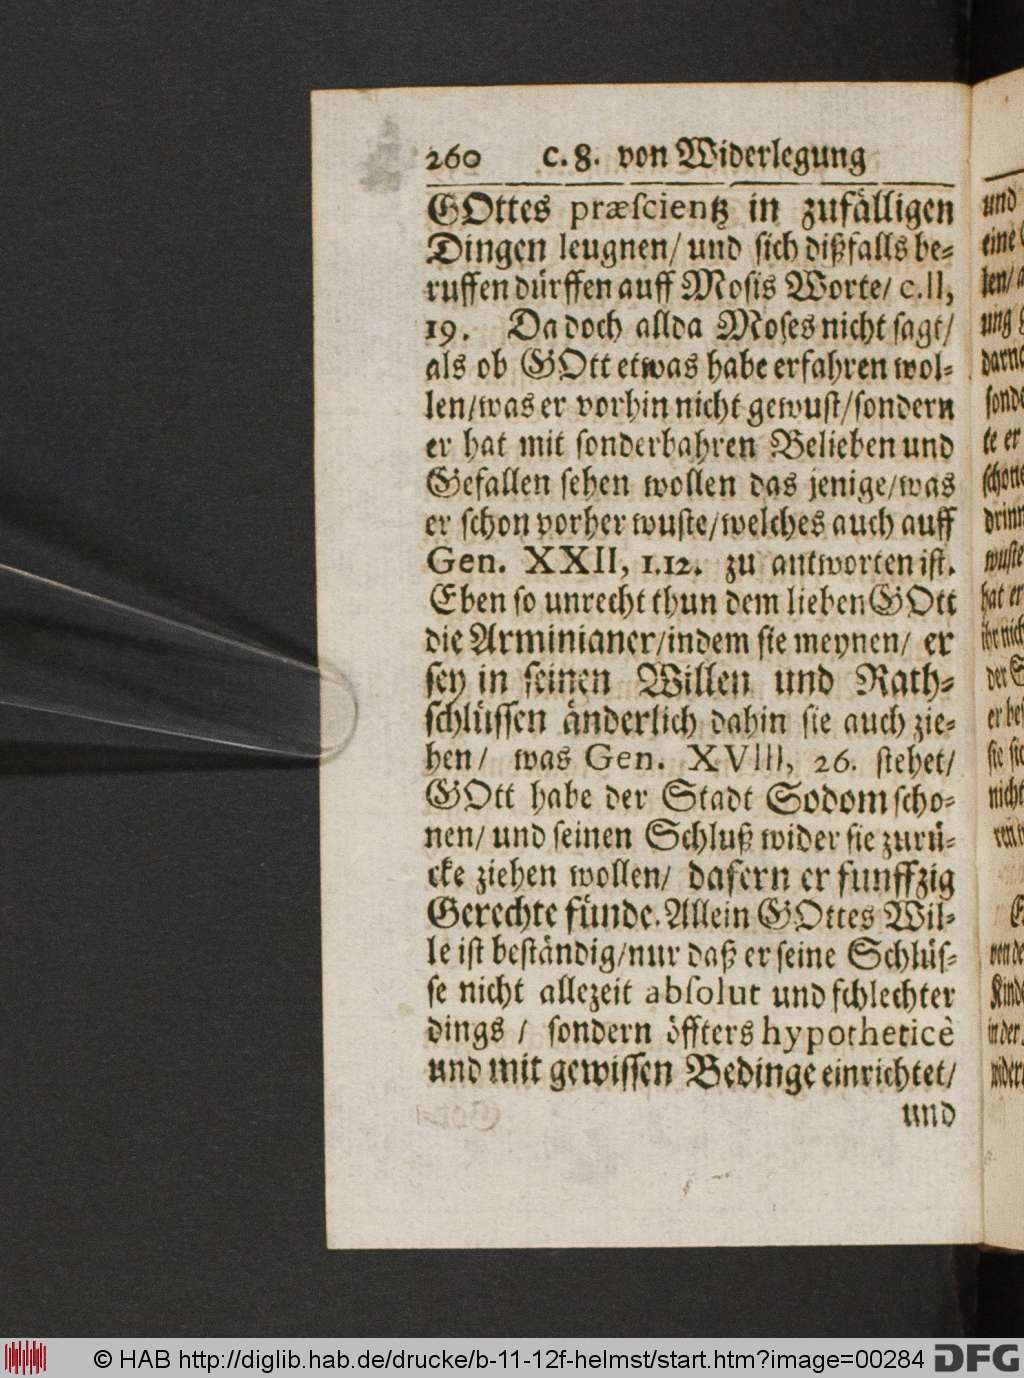 260 c. 8. von Widerlegung
GOttes præscientz in zufälligen
Dingen leugnen/ und sich dißfalls be-
ruffen dürffen auff Mosis Worte/ c. II,
19. Da doch allda Moses nicht sagt/
als ob GOtt etwas habe erfahren wol-
len/was er vorhin nicht gewust/sondern
er hat mit sonderbahren Belieben und
Gefallen sehen wollen das jenige/was
er schon vorher wuste/welches auch auff
Gen. XXII, 1.12. zu antworten ist.
Eben so unrecht thun dem lieben GOtt
die Arminianer/indem sie meynen/ er
sey in seinen Willen und Rath-
schlüssen änderlich dahin sie auch zie-
hen/ was Gen. XVIII, 26. stehet/
GOtt habe der Stadt Sodom scho-
nen/ und seinen Schluß wider sie zurü-
cke ziehen wollen/ dafern er funffzig
Gerechte fünde. Allein GOttes Wil-
le ist beständig/nur daß er seine Schlüs-
se nicht allezeit absolut und schlechter
dings / sondern öffters hypotheticè
und mit gewissen Bedinge einrichtet/
und
und
eine
len/
ung
sonde
te er
drinn
wuste
hat er
der
sie sie
nicht
Kinde
in der
© HAB http://diglib.hab.de/drucke/b-11-12f-helmst/start.htm?image=00284 DFG